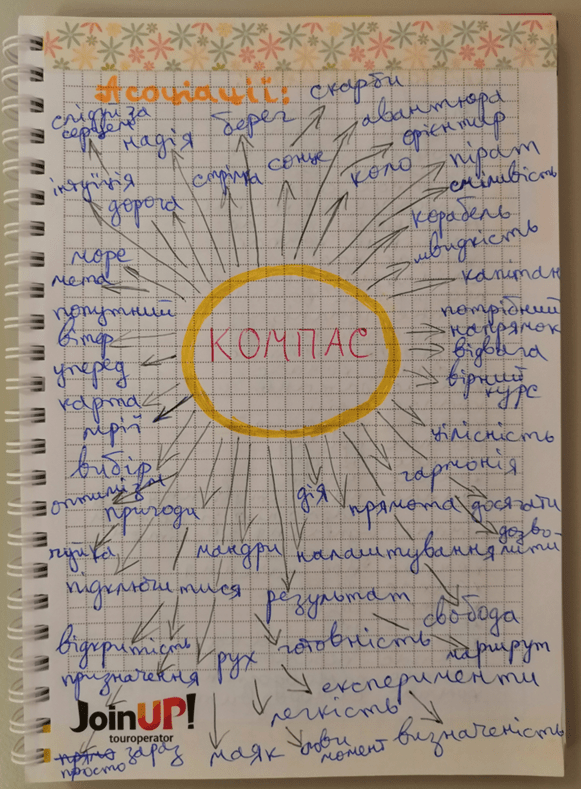 Асоціації:
скарби
слідуй за
серцем
надія
берег
авантюра
орієнтир
інтуїція
дорога
стрілка
сонце
коло
пірат
сміливість
корабель
швидкість
море
мета
капітан
попутний
вітер
потрібний
напрямок
КОМПАС
уперед
відвага
карта
мрії
вірний
курс
вибір
цілісність
гармонія
оптимізм
пригоди
дія
прямота
досягати
чуйка
мандри
налаштування
дозво-
лити
підключитися
результат
свобода
відкритість
призначення
рух
готовність
маршрут
експерименти
легкість
JoinUP!
touroperator
просто
зараз
маяк
лови
момент
визначеність